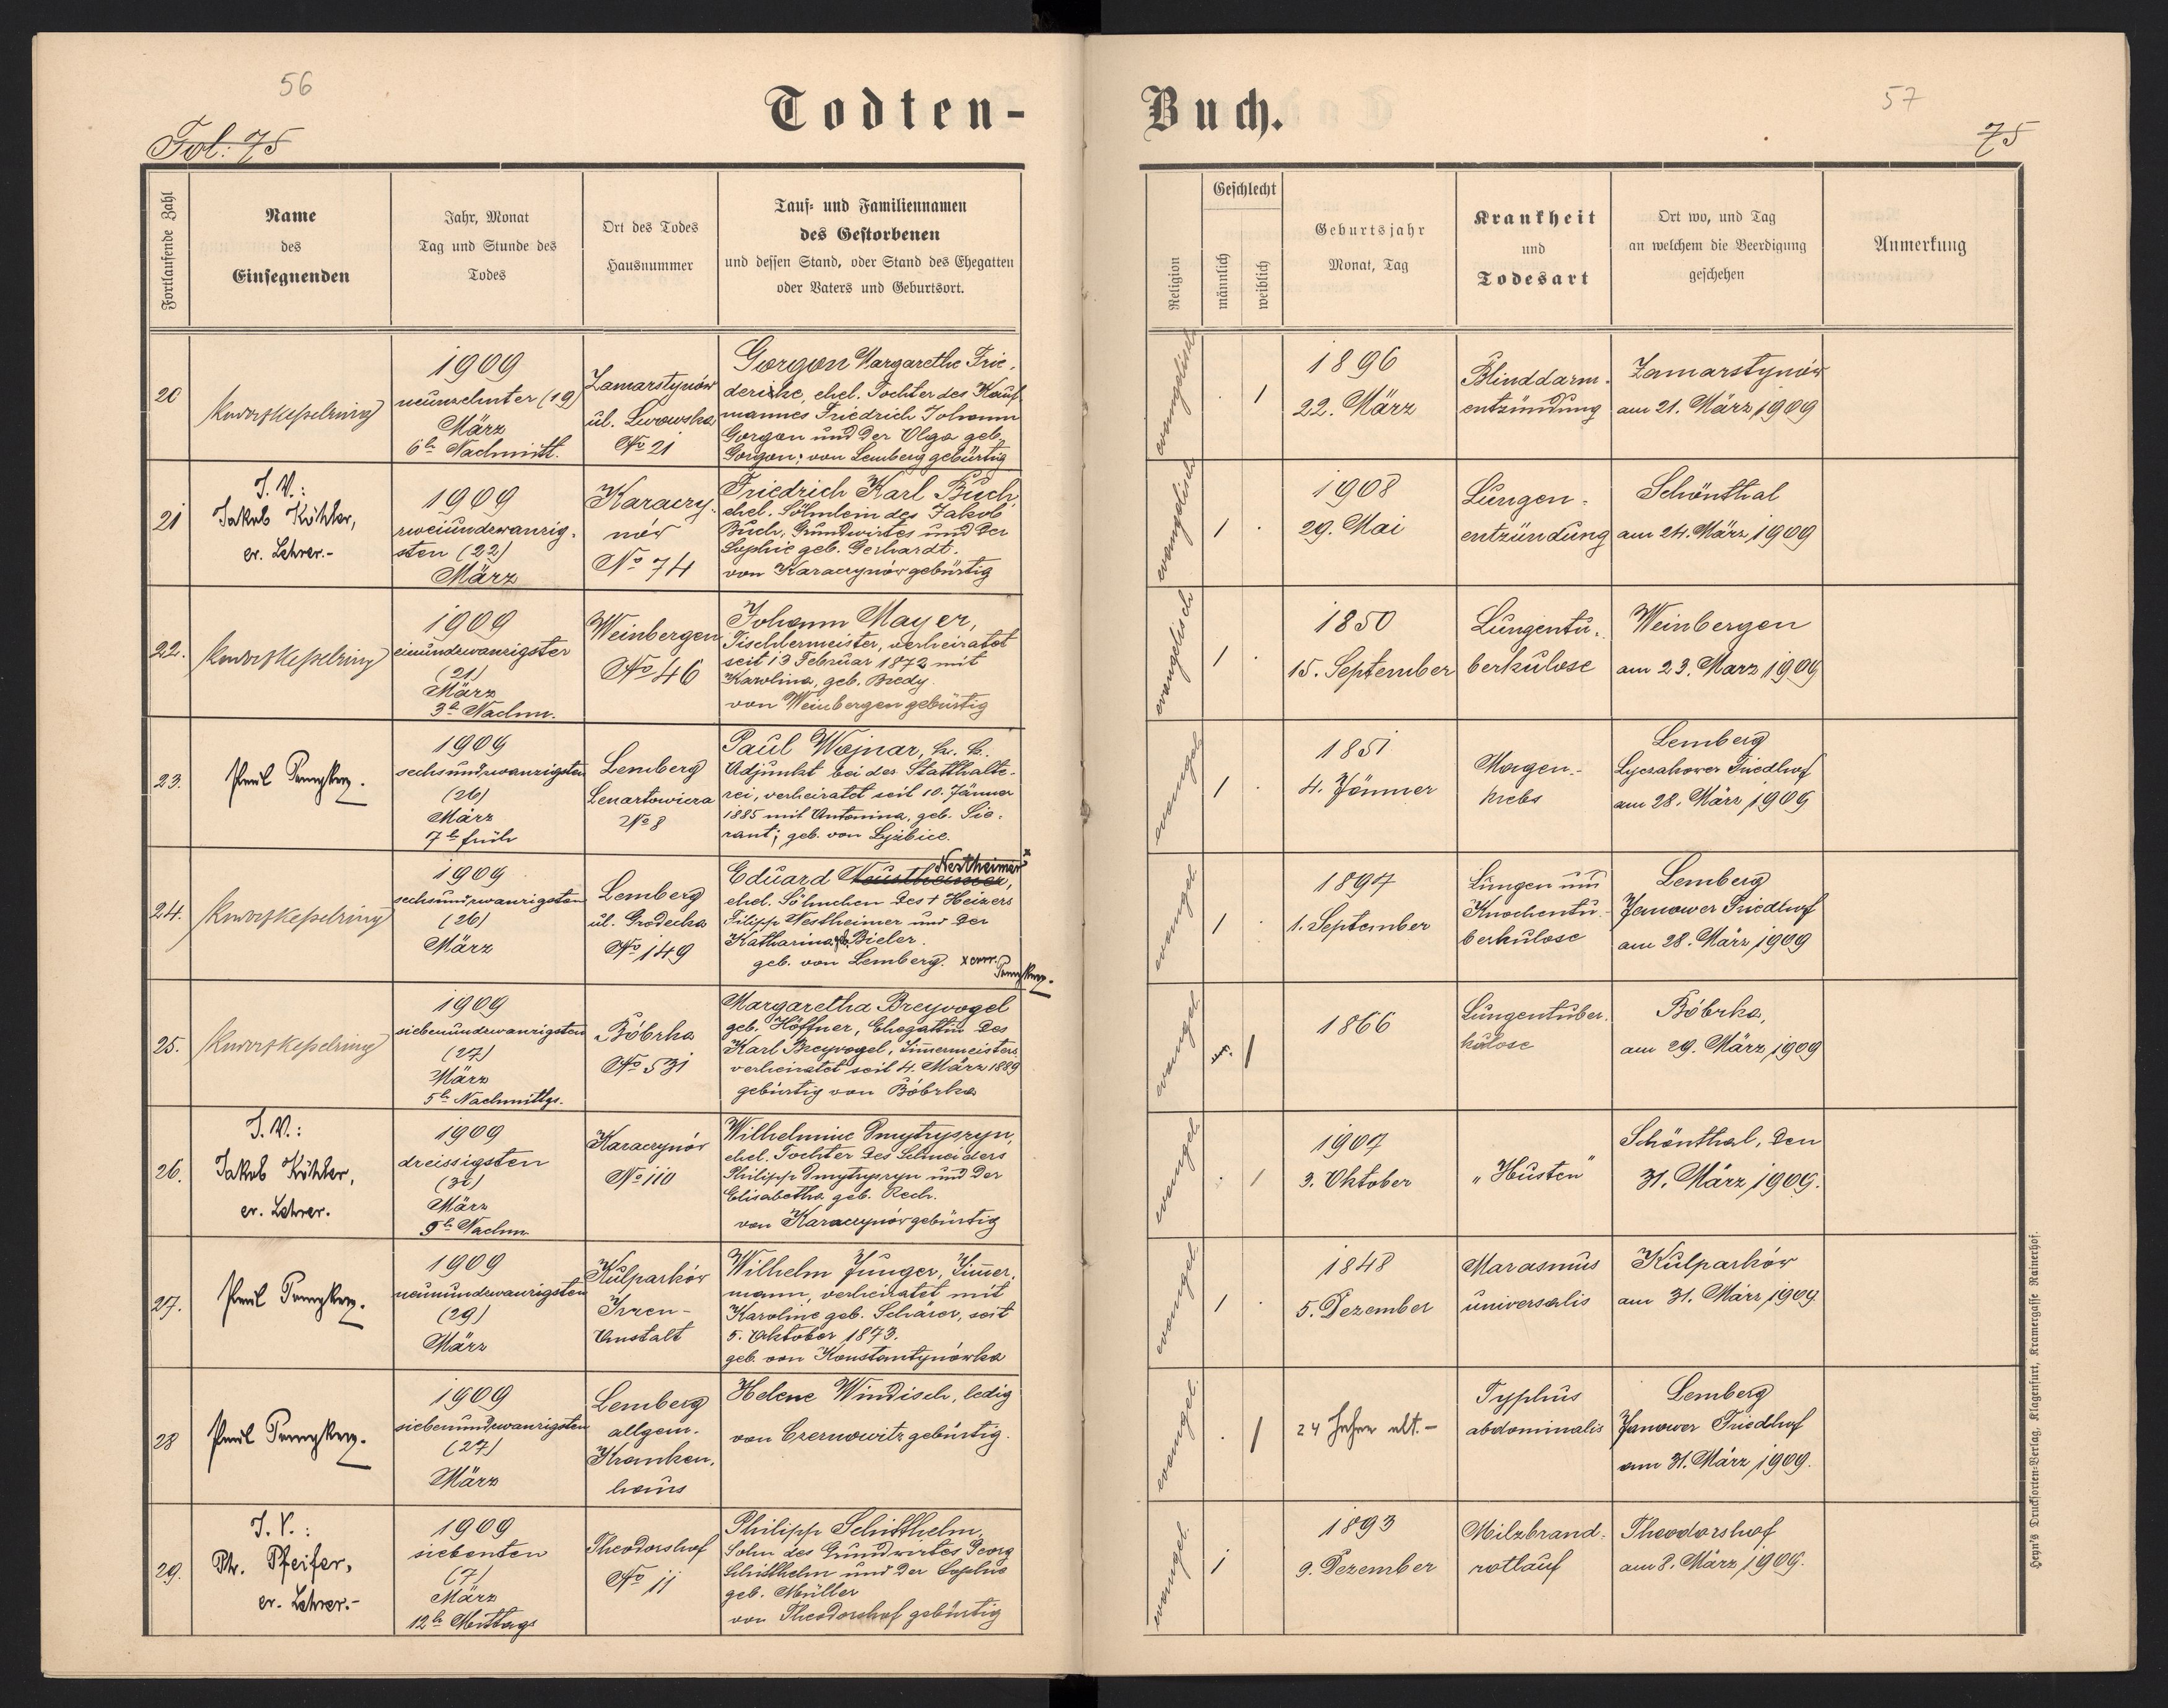 56
Todten-
Fol: 75
Fortlaufende Zahl
Name
des
Einsegnenden
Jahr, Monat
Tag und Stunde des
Todes
Ort des Todes
Hausnummer
Tauf= und Familiennamen
des Gestorbenen
und dessen Stand, oder Stand des Ehegatten
oder Vaters und Geburtsort.
20
1909
neunzehnter (19)
März
6h Nachmitt.
Zamarstynów
ul. Lwowska
No 21
Gorgon Margarethe Frie-
derike, ehel. Tochter des Kauf-
mannes Friedrich Johann
Gorgon und der Olga geb.
Gorgon; von Lemberg gebürtig
21
I. V.:
Jakob Köhler,
ev. Lehrer.-
1909
zweiundzwanzig-
sten (22)
März
Karaczy-
nów
No 74
Friedrich Karl Buch
ehel. Söhnlein des Jakob
Buch, Grundwirtes und der
Sophie geb. Gerhardt.
von Karaczynów gebürtig
22.
1909
einundzwanzigster
(21)
März
3h Nachm.
Weinbergen
No 46
Johann Mayer,
Tischlermeister, verheiratet
seit 13 Februar 1872 mit
Karolina, geb. Bredy.
von Weinbergen gebürtig
23.
1909
sechsundzwanzigsten
(26)
März
7h früh
Lemberg
Lenartowicza
No 8
Paul Wojnar, k. k.
Adjunkt bei der Statthalte-
rei, verheiratet seit 10. Jänner
1885 mit Antonina, geb. Sie-
rant; geb. von Ligibice.
24.
1909
sechsundzwanzigsten
(26)
März
Lemberg
ul. Grodecka
No 149
Nestheimer x
Eduard
ehel. Söhnchen des † Heizers
Filipp Nestheimer und der
Katharina geb. Bieler.
geb. von Lemberg. x corr.
25.
1909
siebenundzwanzigsten
(27)
März
5h Nachmittgs.
Bóbrka
No 531
Margaretha Breyvogel
geb. Höffner, Ehegattin des
Karl Breyvogel, Zimmermeisters
verheiratet seit 4. März 1889
gebürtig von Bóbrka
26.
I. V.:
Jakob Köhler,
ev. Lehrer.
1909
dreissigsten
(30)
März
9h Nachm.
Karaczynów
No 110
Wilhelmine Dmytryszyn,
ehel. Tochter des Schneiders
Philipp Dmytryszyn und der
Elisabetha geb. Rech.
von Karaczynów gebürtig
27.
1909
neunundzwanzigsten
(29)
März
Kulparków
Irren-
Anstalt
Wilhelm Junger, Zimmer-
mann, verheiratet mit
Karoline geb. Schärer, seit
5. Oktober 1873.
geb. von Konstantynówka
28
1909
siebenundzwanzigsten
(27)
März
Lemberg
allgem.
Kranken-
haus
Helene Windisch, ledig
von Czernowitz gebürtig.
29.
I. V.:
Ph. Pfeifer,
ev. Lehrer.-
1909
siebenten
(7)
März
12h Mittags
Theodorshof
No 11
Philipp Schitthelm,
Sohn des Grundwirtes Georg
Schitthelm und der Sophie
geb. Müller
von Theodorshof gebürtig
57
Buch.
75
Religion
Geschlecht
männlich
weiblich
Geburtsjahr
Monat, Tag
Krankheit
und
Todesart
Ort wo, und Tag
an welchem die Beerdigung
geschehen
Anmerkung
evangelisch
. 1
1896
22. März
Blinddarm-
entzündung
Zamarstynów
am 21. März 1909
evangelisch
1 .
1908
29. Mai
Lungen-
entzündung
Schönthal
am 24. März 1909
evangelisch
1 .
1850
15. September
Lungentu-
berkulose
Weinbergen
am 23. März 1909
evangel.
1 .
1851
4. Jänner
Magen-
krebs
Lemberg
Lyczakower Friedhof
am 28. März 1909
evangel.
1 .
1897
1. September
Lungen und
Knochentu-
berkulose
Lemberg
Janower Friedhof
am 28. März 1909
evangel.
1
1866
Lungentuber-
kulose
Bóbrka,
am 29. März 1909
evangel.
. 1
1907
3. Oktober
"Husten"
Schönthal, den
31. März 1909.
evangel.
1 .
1848
5. Dezember
Marasmus
universalis
Kulparków
am 31. März 1909.
evangel.
. 1
24 Jahre alt.-
Typhus
abdominalis
Lemberg
Janower Friedhof
am 31. März 1909.
evangel.
1
1893
9. Dezember
Milzbrand-
rotlauf
Theodorshof
am 8. März 1909.
Heyn's Drucksorten=Verlag, Klagenfurt, Kramergasse Rainerhof.